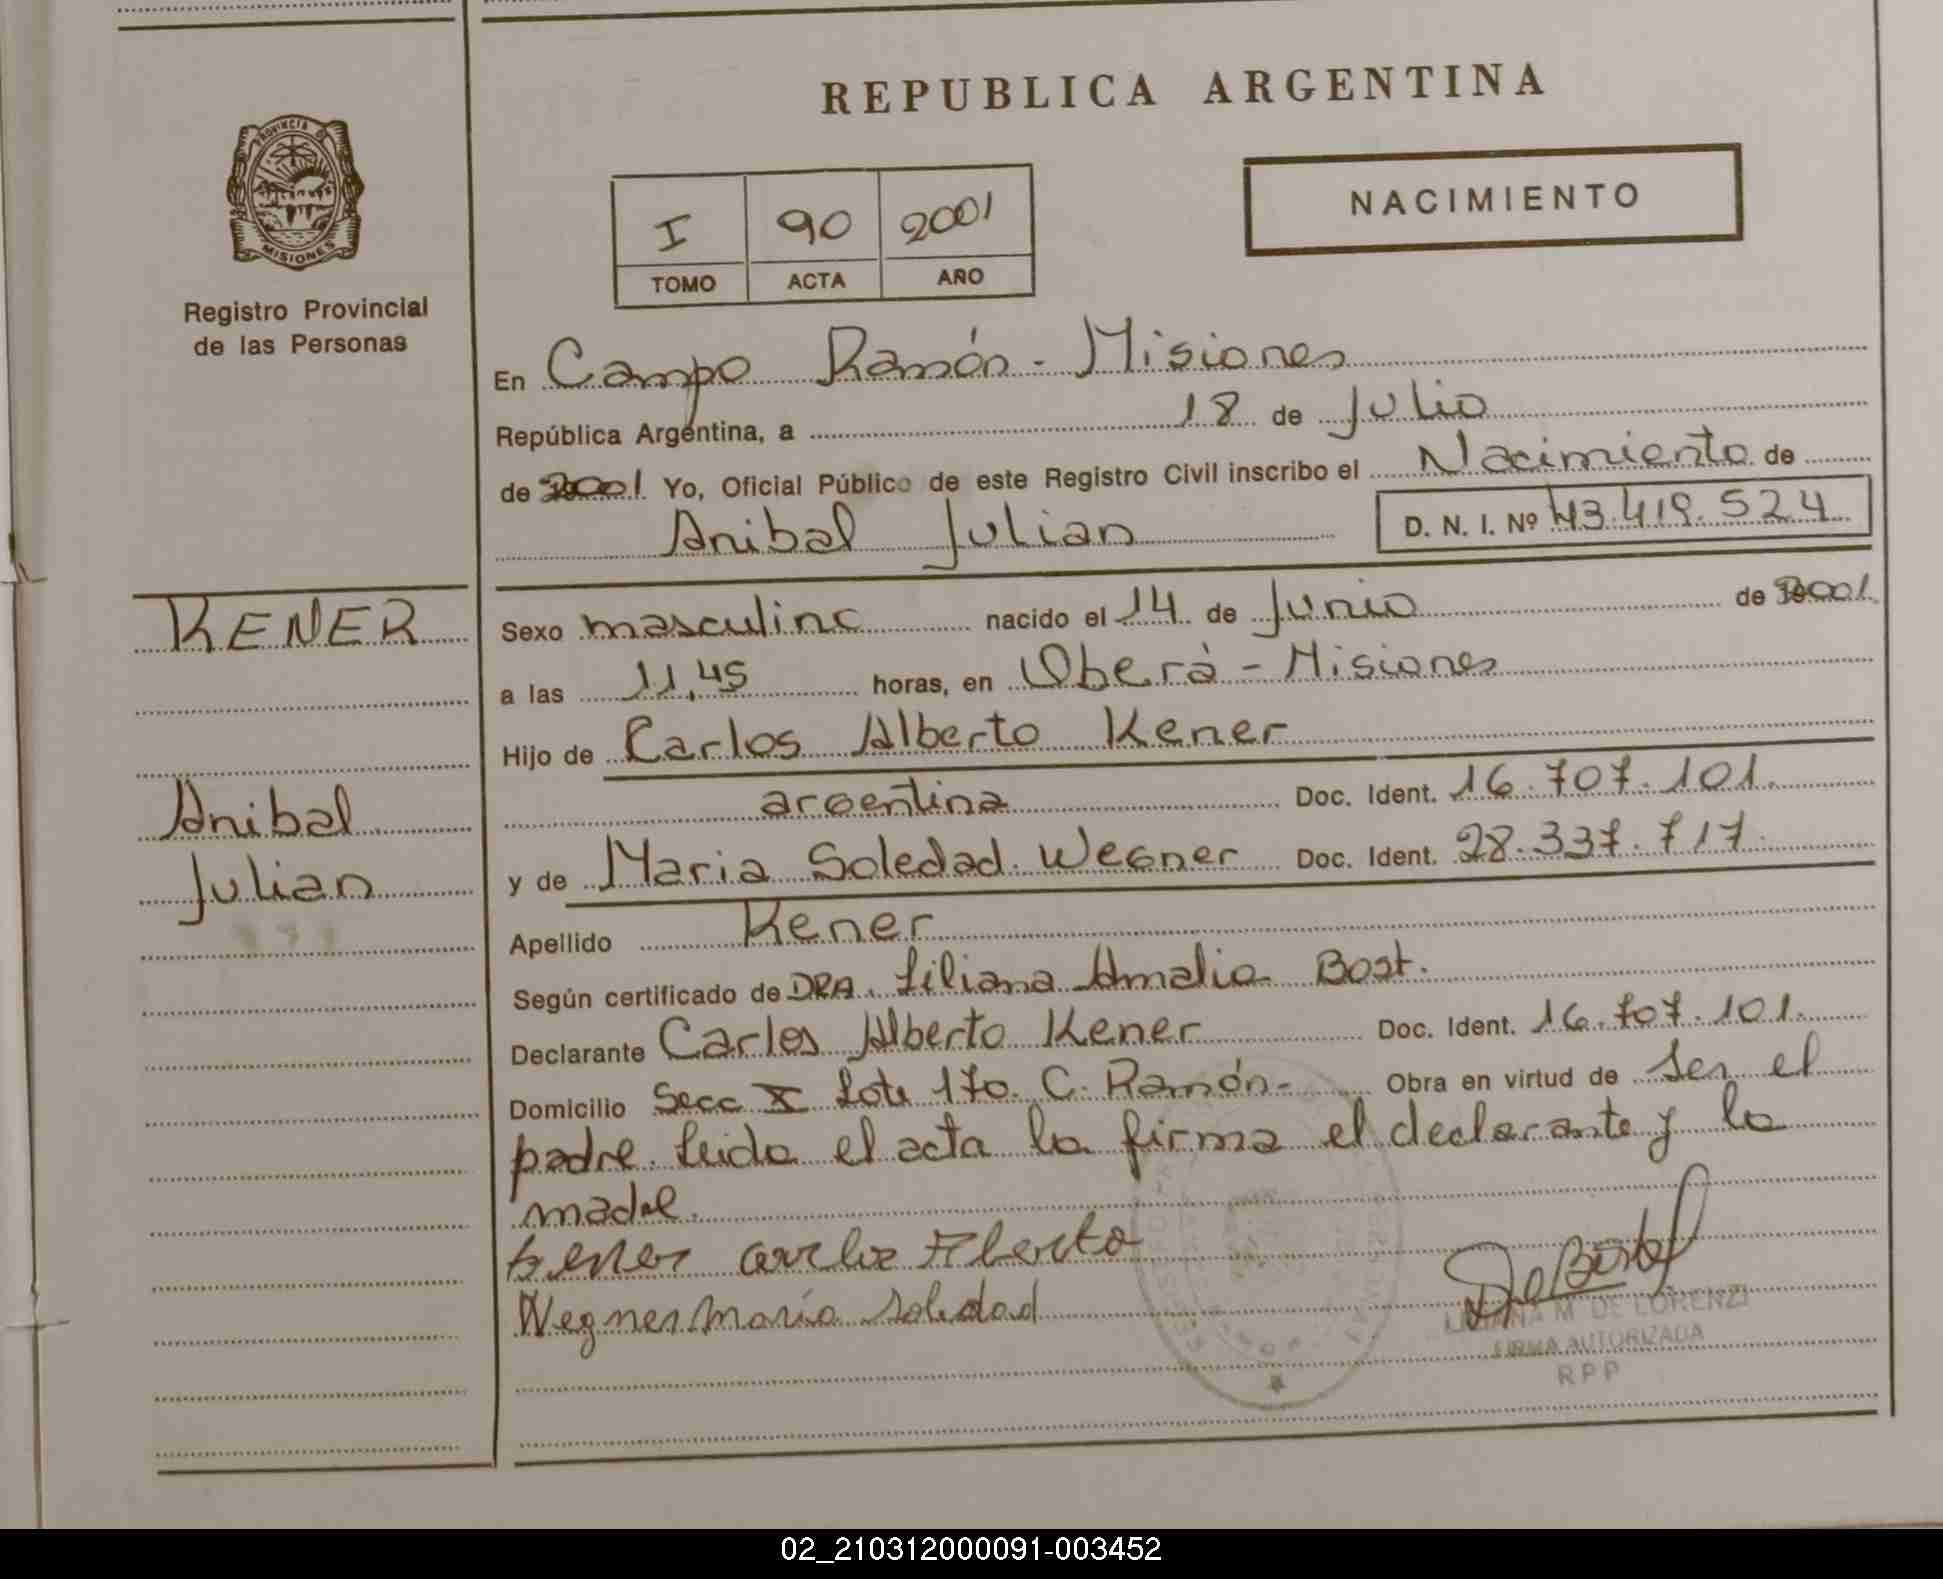 REPUBLICA ARGENTINA
PROVINCIA DE
MISIONES
Registro Provincial
de las Personas
I 90 2001
TOMO ACTA AÑO
NACIMIENTO
En Campo Ramón - Misiones
República Argentina, a 18 de Julio
de 2001 Yo, Oficial Público de este Registro Civil inscribo el Nacimiento de
Anibal Julian D. N. I. Nº 43.419.524
KENER
Anibal
Julian
Sexo masculino nacido el 14 de Junio de 2001
a las 11,45 horas, en Oberá - Misiones
Hijo de Carlos Alberto Kener
argentina Doc. Ident. 16.707.101.
y de Maria Soledad Wegner Doc. Ident. 28.337.717
Apellido Kener
Según certificado de DRA. Liliana Amalia Bost.
Declarante Carlos Alberto Kener Doc. Ident. 16.707.101.
Domicilio Secc X Lote 170. C. Ramón- Obra en virtud de Ser el
padre. Leida el acta la firma el declarante y la
madre.
Kener carlos Alberto
Wegner María Soledad
LILIANA M DE LORENZI
FIRMA AUTORIZADA
RPP
02_210312000091-003452